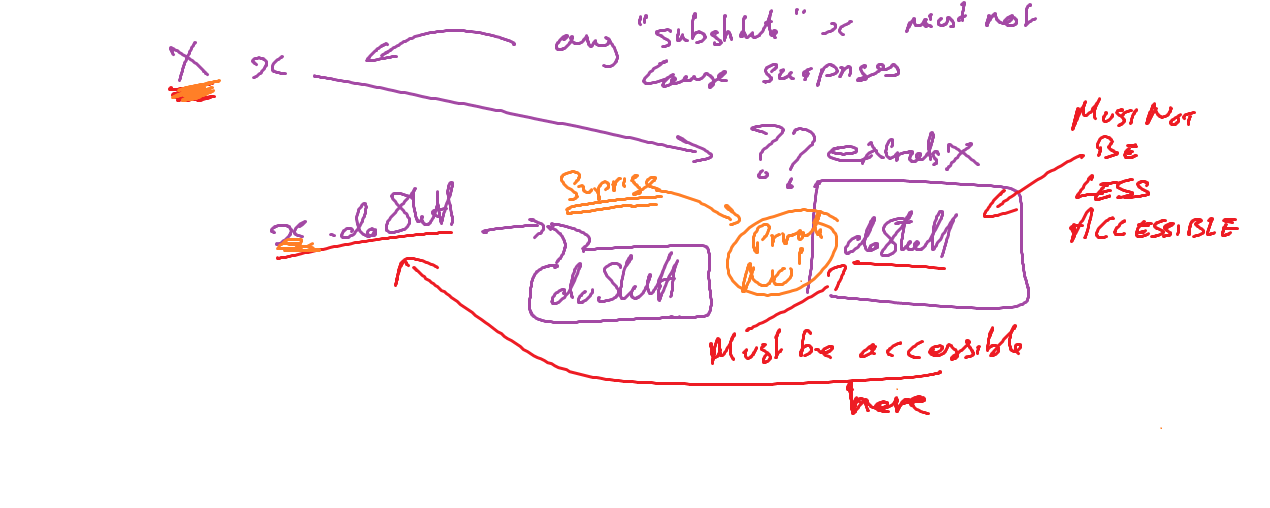 any "substitute" x must not
cause surprises
X x
?? extends X
MUST NOT
BE
LESS
ACCESSIBLE
Suprise
x.doStuff
doStuff
Private
NO!
doStuff
Must be accessible
here